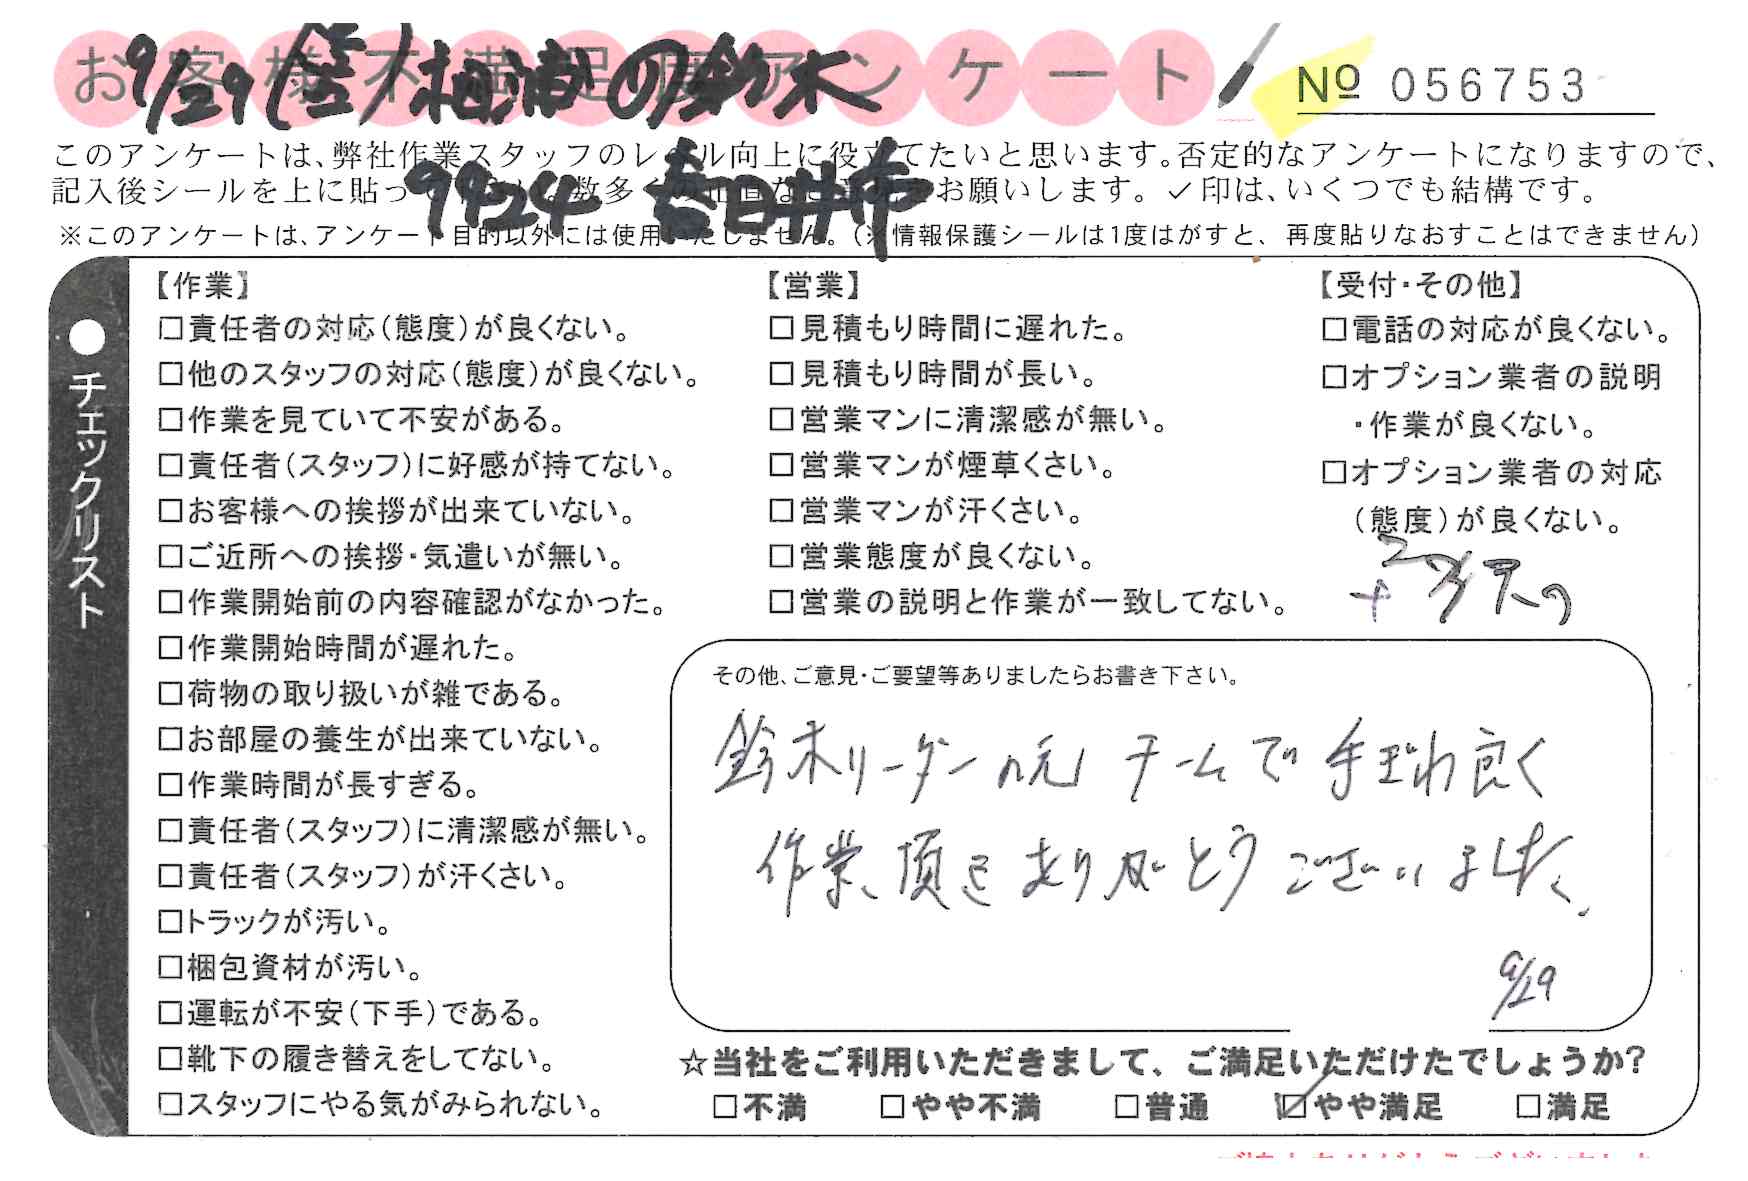 お客様不満足度アンケート
No 056753
9/29(笠)相浦の鈴木
9924 春日井市
このアンケートは、弊社作業スタッフのレベル向上に役立てたいと思います。否定的なアンケートになりますので、
記入後シールを上に貼って下さい。数多くの正直なご意見をお願いします。✓印は、いくつでも結構です。
※このアンケートは、アンケート目的以外には使用いたしません。(※情報保護シールは1度はがすと、再度貼りなおすことはできません)
●チェックリスト
【作業】
□責任者の対応(態度)が良くない。
□他のスタッフの対応(態度)が良くない。
□作業を見ていて不安がある。
□責任者(スタッフ)に好感が持てない。
□お客様への挨拶が出来ていない。
□ご近所への挨拶・気遣いが無い。
□作業開始前の内容確認がなかった。
□作業開始時間が遅れた。
□荷物の取り扱いが雑である。
□お部屋の養生が出来ていない。
□作業時間が長すぎる。
□責任者(スタッフ)に清潔感が無い。
□責任者(スタッフ)が汗くさい。
□トラックが汚い。
□梱包資材が汚い。
□運転が不安(下手)である。
□靴下の履き替えをしてない。
□スタッフにやる気がみられない。
【営業】
□見積もり時間に遅れた。
□見積もり時間が長い。
□営業マンに清潔感が無い。
□営業マンが煙草くさい。
□営業マンが汗くさい。
□営業態度が良くない。
□営業の説明と作業が一致してない。
【受付・その他】
□電話の対応が良くない。
□オプション業者の説明
・作業が良くない。
□オプション業者の対応
(態度)が良くない。
その他、ご意見・ご要望等ありましたらお書き下さい。
鈴木リーダーの元 チームで 手ぎわ良く
作業、頂き ありがとう ございました。
9/29
☆当社をご利用いただきまして、ご満足いただけたでしょうか?
□不満 □やや不満 □普通 ☑やや満足 □満足